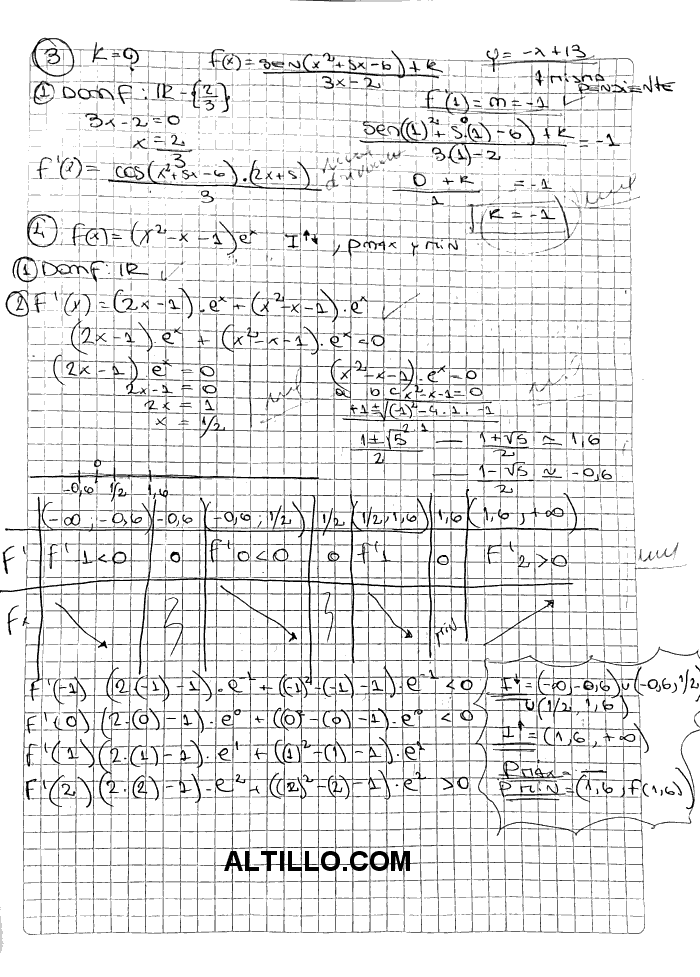 3 K=? f(x) = sen(x²+5x-6)+k / 3x-2 y = -x+13
① Dom f: IR - {2/3} ↑ misma pendiente
3x-2=0 f'(1) = m = -1
x = 2/3 sen((1)²+5.(1)-6)+k / 3.(1)-2 = -1
f'(x) = cos(x²+5x-6).(2x+5) / 3 0+k / 1 = -1
K = -1
4 f(x) = (x²-x-1)eˣ I↑↓, pmax y min
① Dom f: IR
② F'(x) = (2x-1).eˣ + (x²-x-1).eˣ
(2x-1).eˣ + (x²-x-1).eˣ = 0
(2x-1) eˣ = 0 (x²-x-1).eˣ = 0
2x-1 = 0 a b c x²-x-1=0
2x = 1 +1±√(-1)²-4.1.-1 / 2.1
x = 1/2
1±√5 / 2 — 1+√5 / 2 ≃ 1,6
— 1-√5 / 2 ≃ -0,6
0
-0,6 1/2 1,6
(-∞, -0,6) -0,6 (-0,6; 1/2) 1/2 (1/2, 1,6) 1,6 (1,6, +∞)
F' f'1<0 0 f'0<0 0 f'1 0 F'2>0
Fx min
F'(-1) (2.(-1)-1).e⁻¹ + ((-1)²-(-1)-1).e⁻¹ <0
F'(0) (2.(0)-1).e⁰ + ((0)²-(0)-1).e⁰ <0
F'(1) (2.(1)-1).e¹ + ((1)²-(1)-1).e¹
F'(2) (2.(2)-1).e² + ((2)²-(2)-1).e² >0
I↓ = (-∞, -0,6) ∪ (-0,6, 1/2)
∪ (1/2, 1,6)
I↑ = (1,6, +∞)
Pmax = —
Pmin = (1,6, f(1,6))
ALTILLO.COM